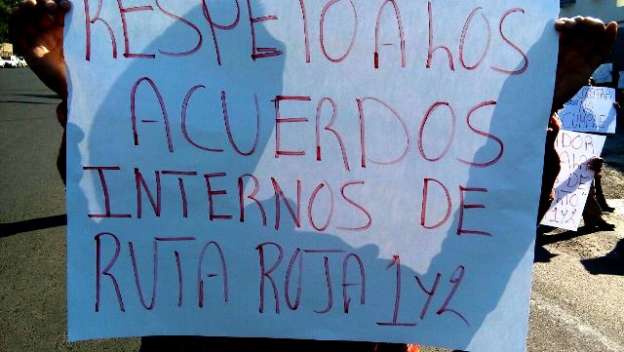 RESPETO A LOS
ACUERDOS
INTERNOS DE
RUTA ROJA 1 y 2